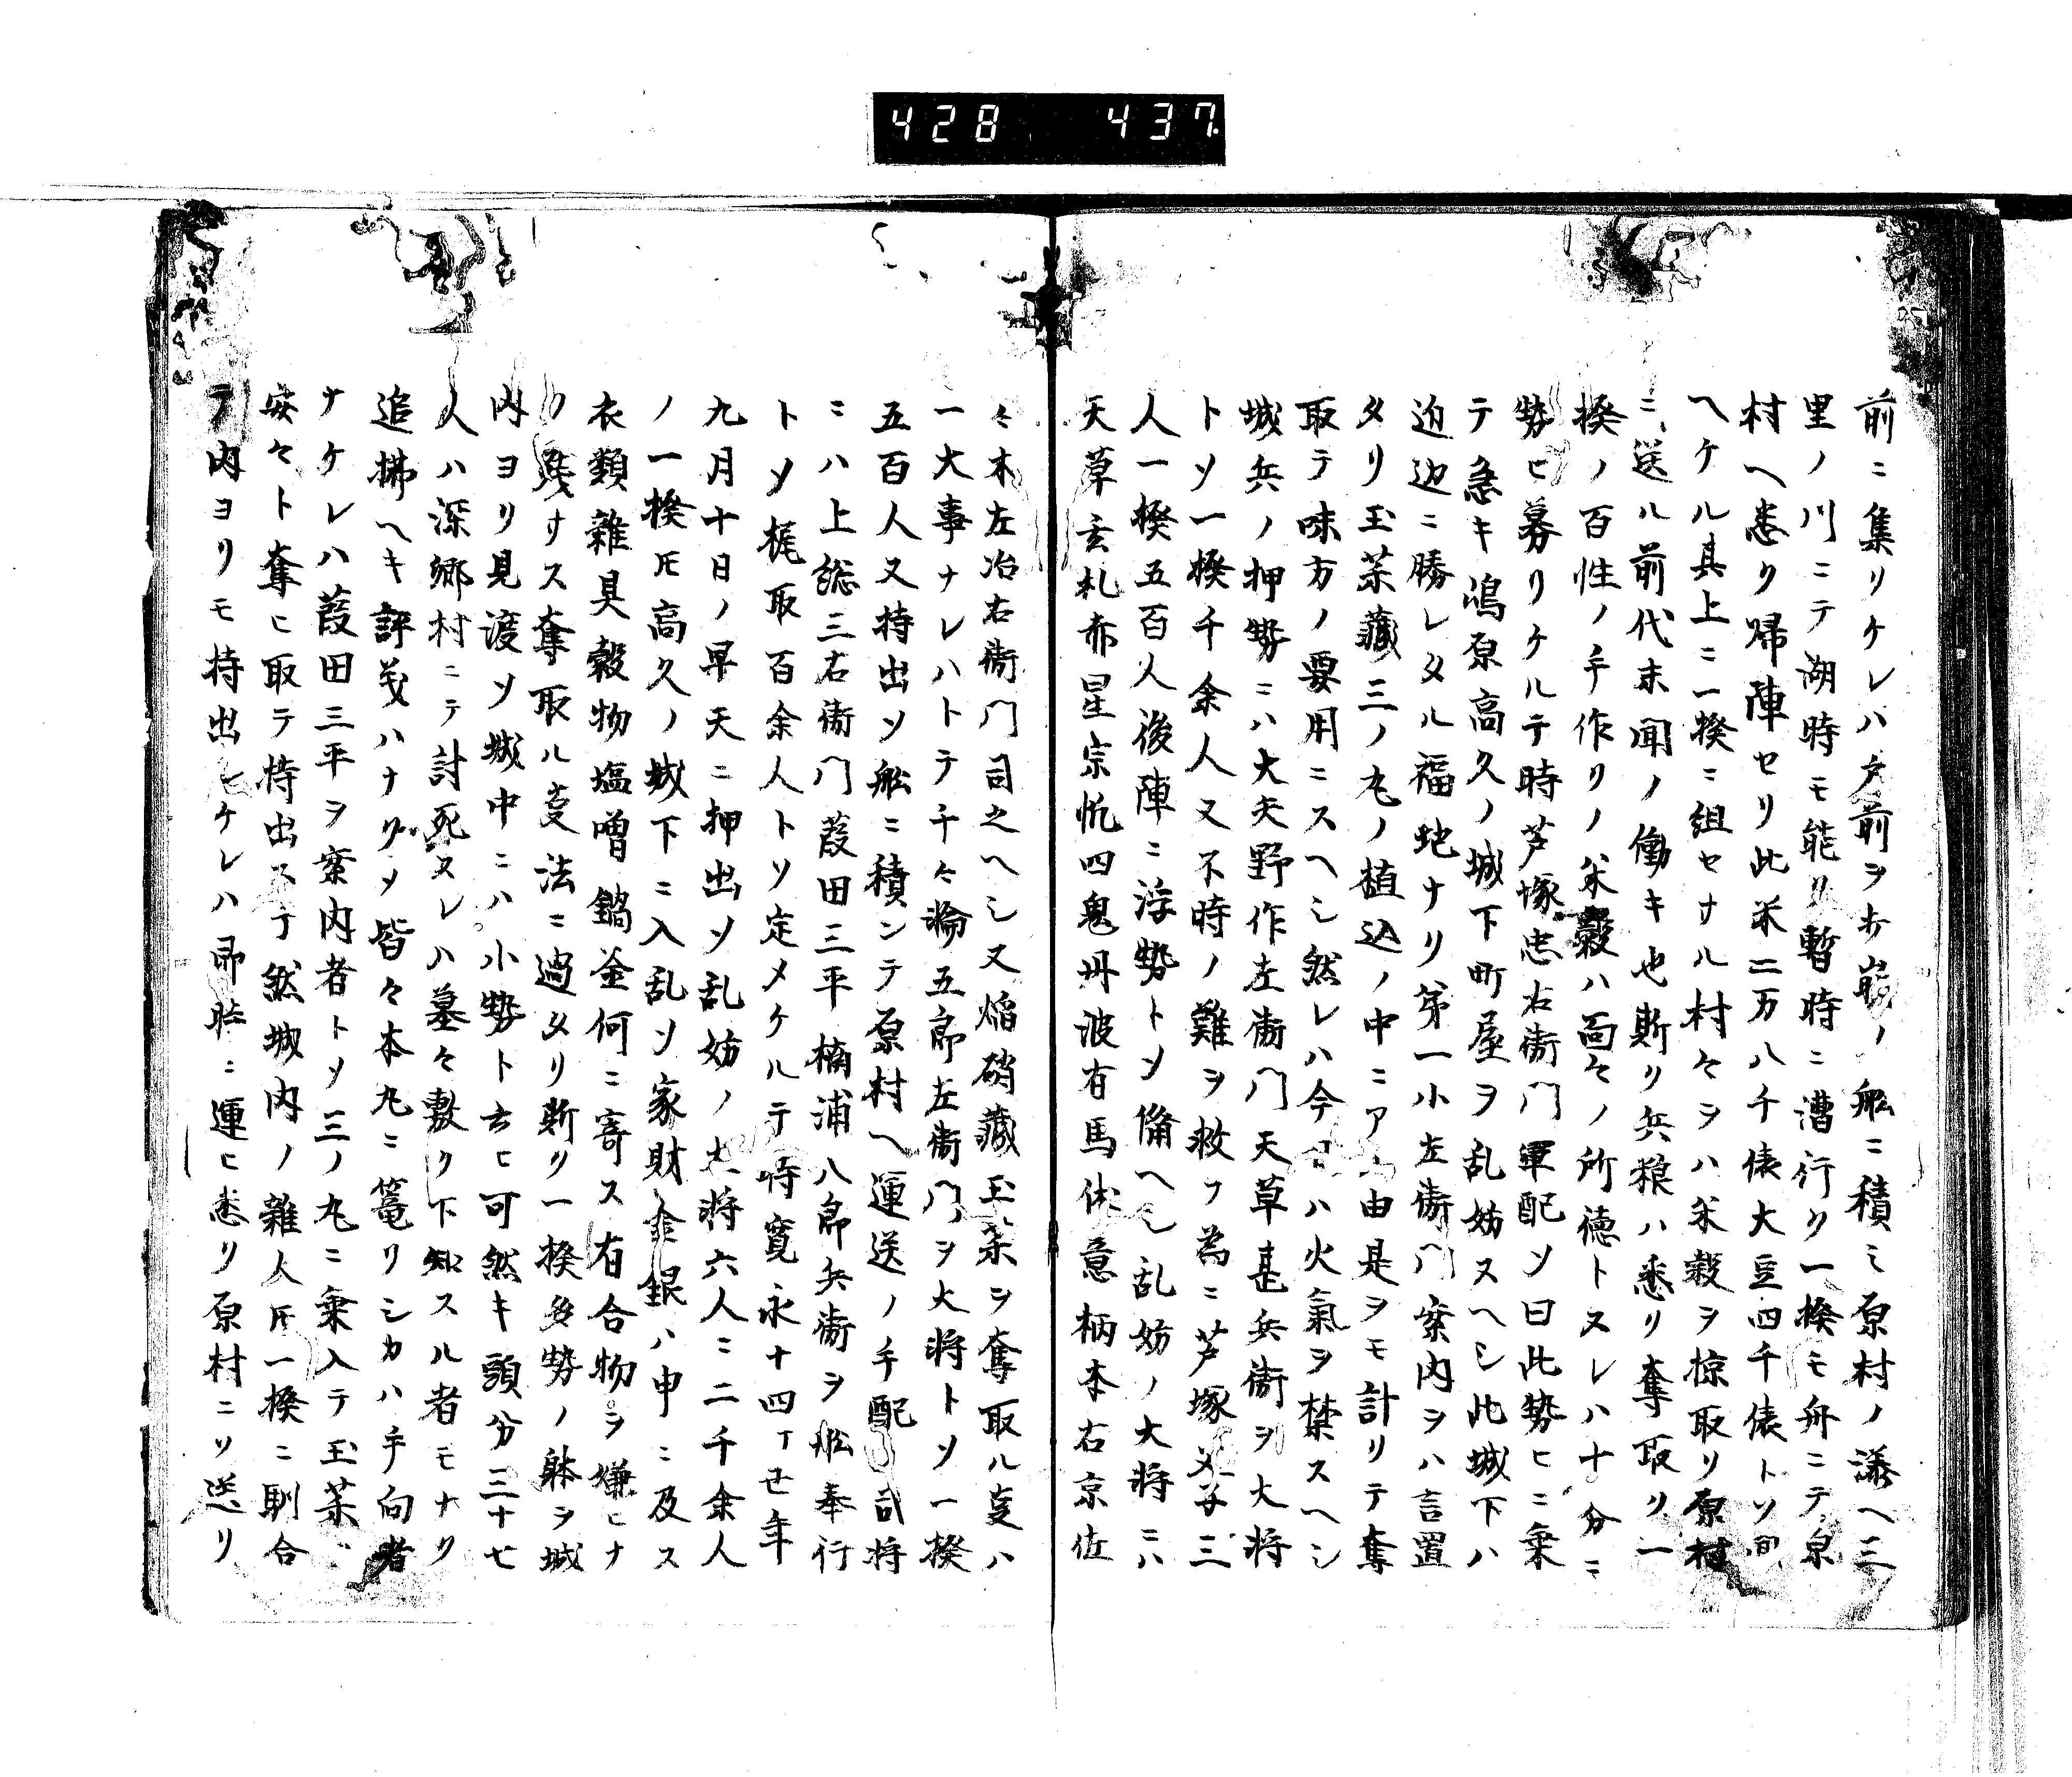 428 437
前ニ集リケレハ夕前ヲ木崩ノ舩ニ積ミ原村ノ湊ヘ三
里ノ川ニテ湖時モ能リ暫時ニ漕行ク一揆モ舟ニテ原
村ヘ悉ク帰陣セリ此米二万八千俵大豆四千俵トソ聞
ヘケル其上ニ一揆ニ組セナル村々ヲハ米穀ヲ掠取リ原村
ニ送ル前代未聞ノ働キ也斯リ兵粮ハ悉リ奪取リ一
揆ノ百性ノ手作リノ米穀ハ面々ノ所徳トスレハ十分ニ
勢ヒ募リケルテ時芦塚忠右衛門軍配ソ曰此勢ヒニ乗
テ急キ嶋原高久ノ城下町屋ヲ乱妨スヘシ此城下ハ
近辺ニ勝レタル福地ナリ第一小左衛門案内ヲハ言置
タリ玉薬藏三ノ丸ノ植込ノ中ニア　由是ヲモ計リテ奪
取テ味方ノ要用ニスヘシ然レハ今日ハ火氣ヲ禁スヘシ
城兵ノ押勢ニハ大矢野作左衛門天草甚兵衛ヲ大将
トソ一揆千余人又不時ノ難ヲ救フ為ニ芦塚父子三
人一揆五百人後陣ニ浮勢トソ備ヘシ乱妨ノ大将ニハ
天草玄札赤星宗帆四鬼丹波有馬休意柄本右京佐
々木左冶右衛門司之ヘシ又焔硝藏玉薬ヲ奪取ル支ハ
一大事ナレハトテ千々輪五郎左衛門ヲ大将トソ一揆
五百人又持出ソ舩ニ積ンテ原村ヘ運送ノ手配司将
ニハ上総三右衛門葭田三平楠浦八郎兵衛ヲ舩奉行
トソ梶取百余人トソ定メケルテ時寛永十四丁丑年
九月十日ノ早天ニ押出ソ乱妨ノ大将六人ニ二千余人
ノ一揆圧高久ノ城下ニ入乱ソ家財金銀ハ申ニ及ス
衣類雜具穀物塩噌鍋釜何ニ寄ス有合物ヲ嫌ヒナ
ク残サス奪取ル支法ニ過タリ斯リ一揆多勢ノ躰ヲ城
内ヨリ見渡ソ城中ニハ小勢ト云ヒ可然キ頭分三十七
人ハ深郷村ニテ討死スレハ墓々敷ク下知スル者モナク
追拂ヘキ評義ハナクソ皆々本丸ニ篭リシカハ手向者
ナケレハ葭田三平ヲ案内者トソ三ノ丸ニ乗入テ玉薬
安々ト奪ヒ取テ持出ス于然城内ノ雜人圧一揆ニ馴合
テ内ヨリモ持出シケレハ即時ニ運ヒ悉リ原村ニソ送リ